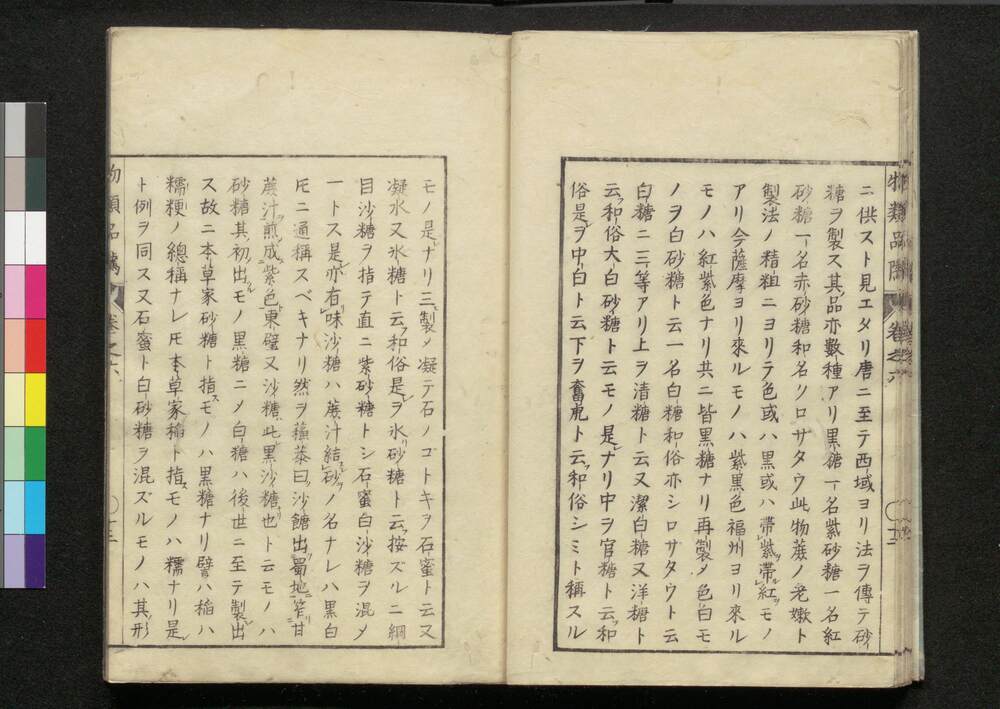 物類品隲 卷之六 〇十二
ニ供スト見エタリ唐ニ至テ西域ヨリ法ヲ傳テ砂
糖ヲ製ス其品亦數種アリ黒糖一名紫砂糖一名紅
砂糖一名赤砂糖和名クロザタウ此物蔗ノ老嫩ト
製法ノ精粗ニヨリテ色或ハ黒或ハ帯紫帯紅モノ
アリ今薩摩ヨリ來ルモノハ紫黒色福州ヨリ來ル
モノハ紅紫色ナリ共ニ皆黒糖ナリ再製メ色白モ
ノヲ白砂糖ト云一名白糖和俗亦シロザタウト云
白糖ニ三等アリ上ヲ清糖ト云又潔白糖又洋糖ト
云和俗大白砂糖ト云モノ是ナリ中ヲ官糖ト云和
俗是ヲ中白ト云下ヲ奮虎ト云和俗シミト稱スル
モノ是ナリ三製メ凝テ石ノゴトキヲ石蜜ト云又
凝水又氷糖ト云和俗是ヲ氷砂糖ト云按ズルニ綱
目沙糖ヲ指テ直ニ紫砂糖トシ石蜜白沙糖ヲ混メ
一トス是亦有味沙糖ハ蔗汁結砂ノ名ナレハ黒白
𪜈ニ通稱スベキナリ然ヲ蘓恭曰沙餹出蜀地笮甘
蔗汁煎成紫色東璧又沙糖此黒沙糖也ト云モノハ
砂糖其初出モノ黒糖ニメ白糖ハ後世ニ至テ製出
ス故ニ本草家砂糖ト指モノハ黒糖ナリ譬ハ稲ハ
糯粳ノ總稱ナレ𪜈本草家稲ト指モノハ糯ナリ是
ト例ヲ同ス又石蜜ト白砂糖ヲ混ズルモノハ其形
物類品隲 卷之六 〇十三